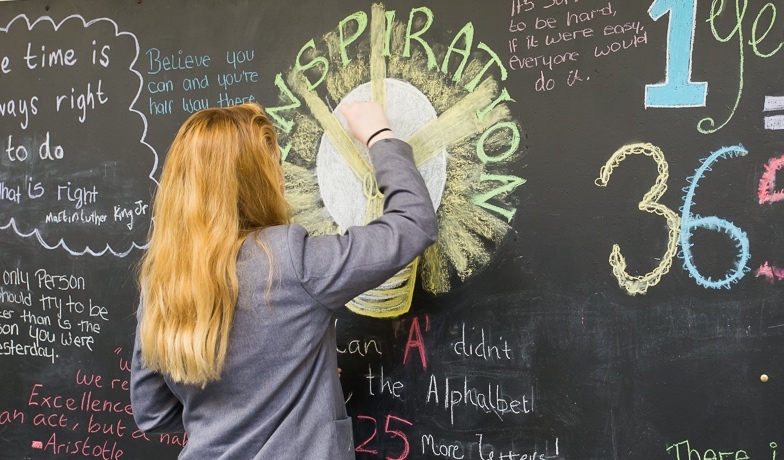 e time is
ways right
to do
hat is right
Martin Luther King Jr
Believe you
can and you're
half way there
INSPIRATION
to be hard,
if it were easy,
everyone would
do it.
1 ye
=
365
only Person
should try to be
ter than is the
son you were
esterday.
"W
we re
Excellence
an act, but a ha
-Aristotle
an 'A' didn't
the Alphalbet
25 More letters!
There i